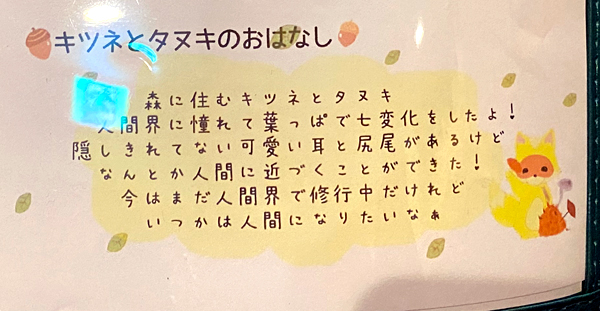 キツネとタヌキのおはなし
森に住むキツネとタヌキ
人間界に憧れて葉っぱで七変化をしたよ！
隠しきれてない可愛い耳と尻尾があるけど
なんとか人間に近づくことができた！
今はまだ人間界で修行中だけれど
いつかは人間になりたいなぁ